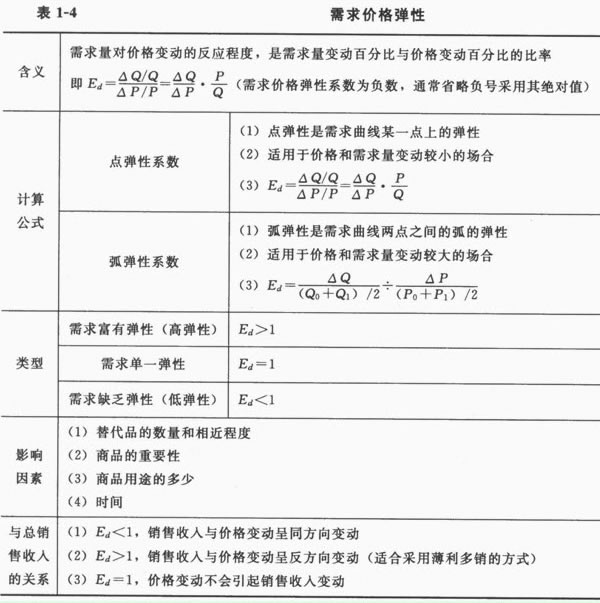 表 1-4 需求价格弹性
含义
需求量对价格变动的反应程度，是需求量变动百分比与价格变动百分比的比率
即 E_d=(ΔQ/Q)/(ΔP/P)=ΔQ/ΔP·P/Q（需求价格弹性系数为负数，通常省略负号采用其绝对值）
计算
公式
点弹性系数
（1）点弹性是需求曲线某一点上的弹性
（2）适用于价格和需求量变动较小的场合
（3）E_d=(ΔQ/Q)/(ΔP/P)=ΔQ/ΔP·P/Q
弧弹性系数
（1）弧弹性是需求曲线两点之间的弧的弹性
（2）适用于价格和需求量变动较大的场合
（3）E_d=ΔQ/((Q₀+Q₁)/2)÷ΔP/((P₀+P₁)/2)
类型
需求富有弹性（高弹性） E_d>1
需求单一弹性 E_d=1
需求缺乏弹性（低弹性） E_d<1
影响
因素
（1）替代品的数量和相近程度
（2）商品的重要性
（3）商品用途的多少
（4）时间
与总销
售收入
的关系
（1）E_d<1，销售收入与价格变动呈同方向变动
（2）E_d>1，销售收入与价格变动呈反方向变动（适合采用薄利多销的方式）
（3）E_d=1，价格变动不会引起销售收入变动